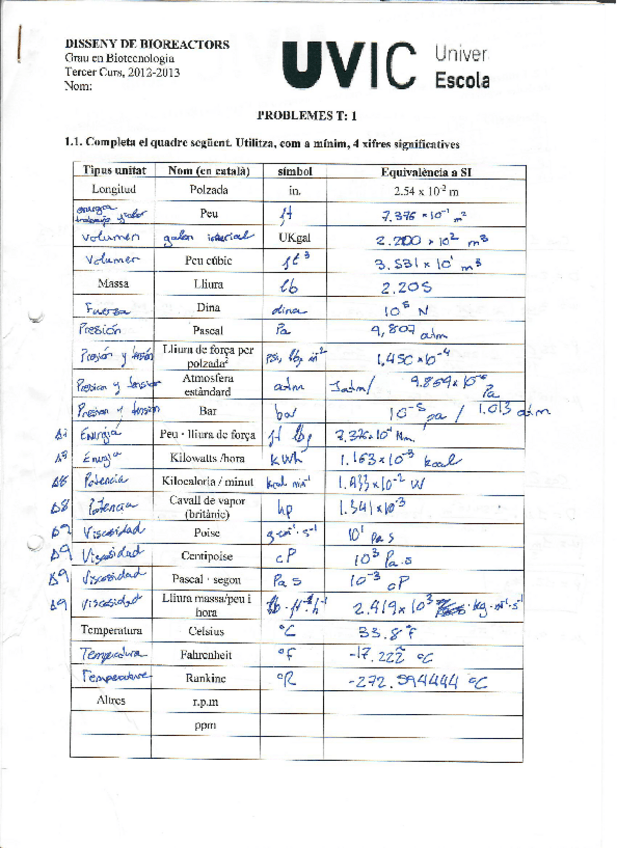 DISSENY DE BIOREACTORS
Grau en Biotecnologia
Tercer Curs, 2012-2013
Nom:
UVIC Univer
Escola
PROBLEMES T: 1
1.1. Completa el quadre següent. Utilitza, com a mínim, 4 xifres significatives
Tipus unitat Nom (en català) símbol Equivalència a SI
Longitud Polzada in. 2.54 x 10⁻² m
energia trabajo y calor Peu ft 7.376 × 10⁻¹ m²
Volumen galon imperial UKgal 2.200 × 10² m³
Volumen Peu cúbic ft³ 3.531 × 10¹ m³
Massa Lliura lb 2.205
Fuerza Dina dina 10⁵ N
Presión Pascal Pa 9,807 atm
Presión y tensión Lliura de força per polzada² psi, lbf in² 1,450 × 10⁻⁴
Presion y tension Atmosfera estàndard atm 1 atm / 9.869 × 10⁻⁶ Pa
Presion y tension Bar bar 10⁻⁵ pa / 1.013 atm
A7 Energia Peu · lliura de força ft lbf 7.376×10¹ Nm
Energia Kilowatts /hora kWh 1.163×10⁻³ kcal
A8 Potencia Kilocaloria / minut kcal min⁻¹ 1.433×10⁻² W
A8 Potencia Cavall de vapor (britànic) hp 1.341×10⁻³
A9 Viscosidad Poise g·cm⁻¹·s⁻¹ 10¹ Pa s
A9 Viscosidad Centipoise cP 10³ Pa.s
A9 Viscosidad Pascal · segon Pa s 10⁻³ cP
A9 Viscosidad Lliura massa/peu i hora lb·ft⁻¹h⁻¹ 2.419×10³ kg·m⁻¹·s⁻¹
Temperatura Celsius ºC 33.8 ºF
Temperatura Fahrenheit ºF -17.222 ºC
Temperatura Rankine ºR -272.594444 ºC
Altres r.p.m
ppm